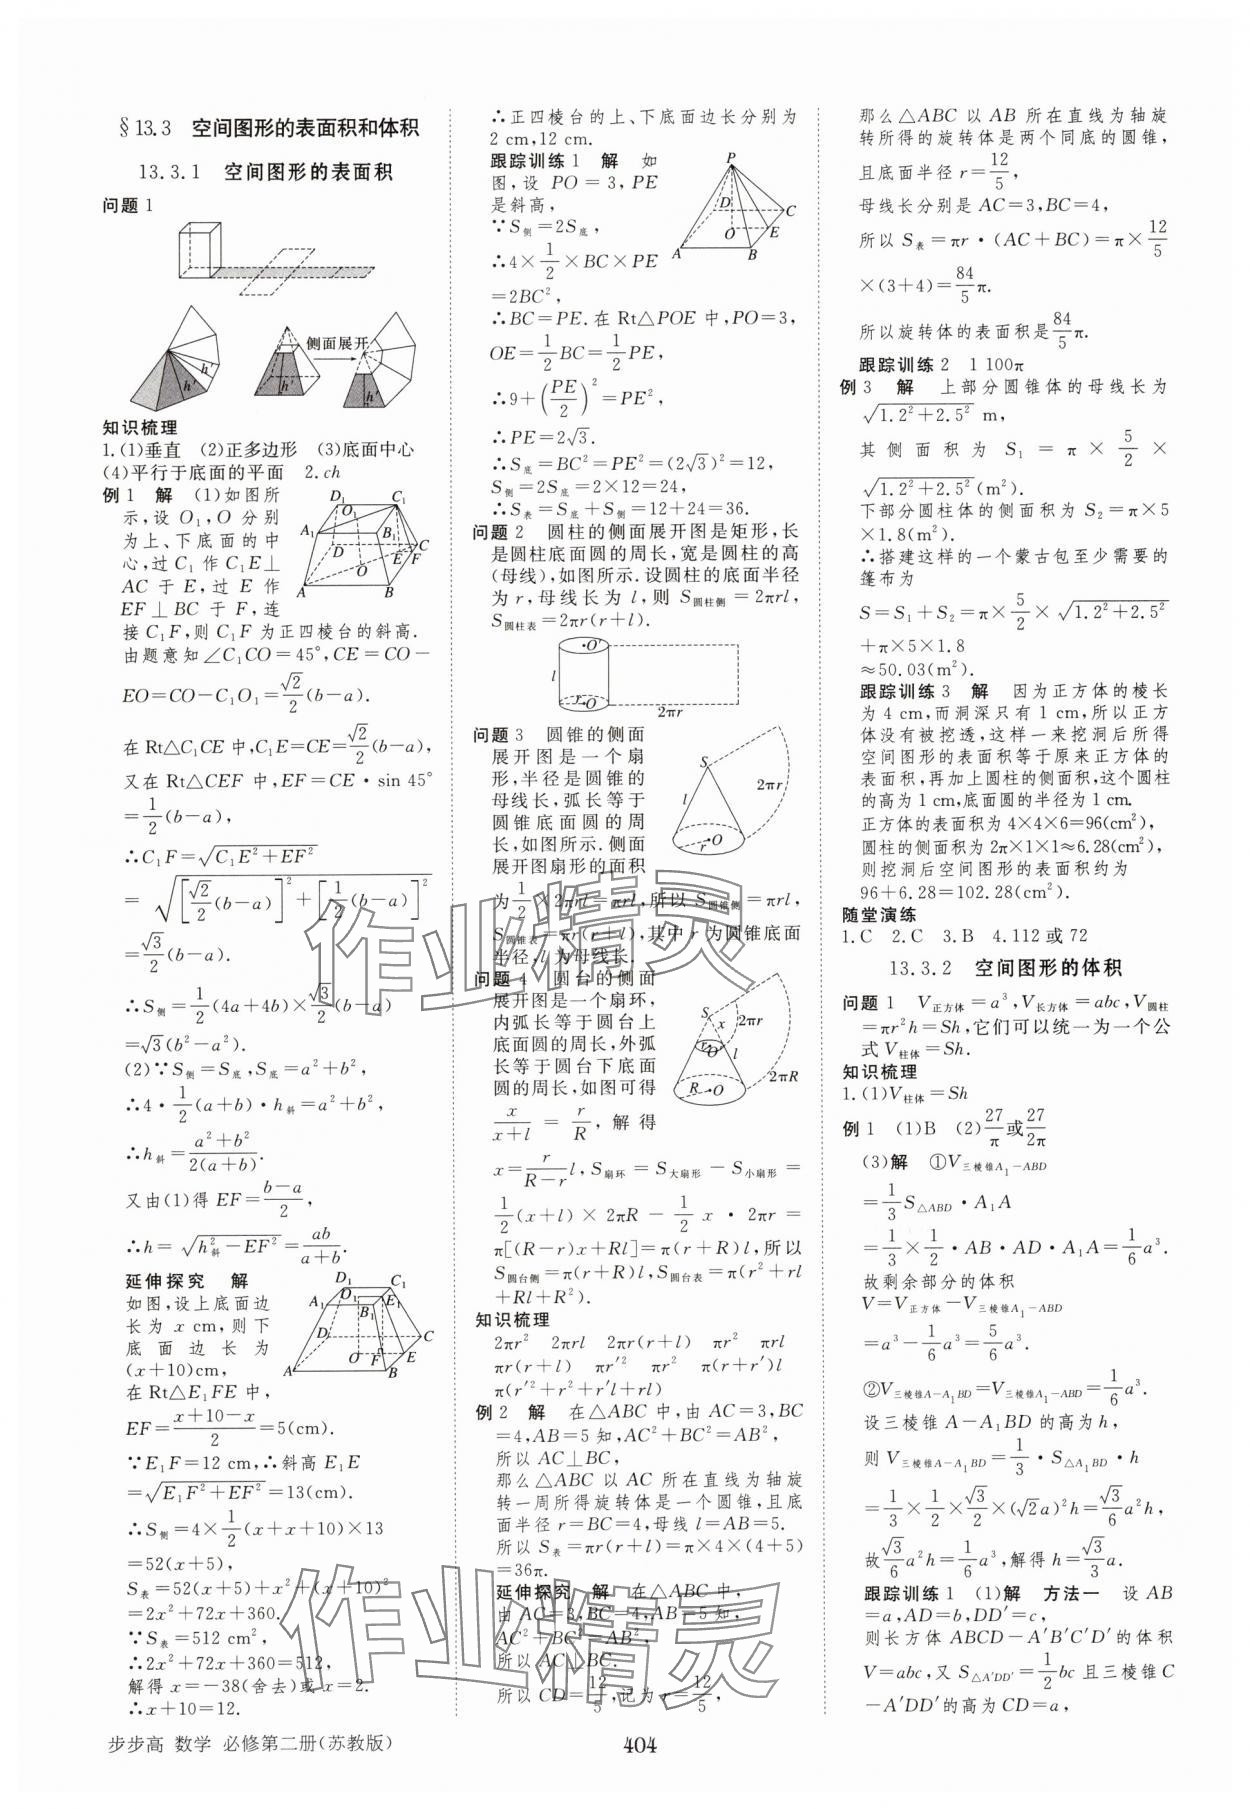 §13.3 空间图形的表面积和体积
13.3.1 空间图形的表面积
问题1
h′ h′ h′ 侧面展开 h′
知识梳理
1.(1)垂直 (2)正多边形 (3)底面中心
(4)平行于底面的平面 2.ch
例1 解 (1)如图所
示,设 O₁,O 分别
为上、下底面的中
心,过 C₁ 作 C₁E⊥
AC 于 E,过 E 作
EF⊥BC 于 F,连
D₁ C₁ A₁ B₁ D C E F O A B
接 C₁F,则 C₁F 为正四棱台的斜高.
由题意知∠C₁CO=45°,CE=CO−
EO=CO−C₁O₁=√2/2(b−a).
在 Rt△C₁CE 中,C₁E=CE=√2/2(b−a),
又在 Rt△CEF 中,EF=CE·sin 45°
=1/2(b−a),
∴C₁F=√(C₁E²+EF²)
=√([√2/2(b−a)]²+[1/2(b−a)]²)
=√3/2(b−a).
∴S侧=1/2(4a+4b)×√3/2(b−a)
=√3(b²−a²).
(2)∵S侧=S底,S底=a²+b²,
∴4·1/2(a+b)·h斜=a²+b²,
∴h斜=(a²+b²)/(2(a+b)).
又由(1)得 EF=(b−a)/2,
∴h=√(h斜²−EF²)=ab/(a+b).
延伸探究 解
如图,设上底面边
长为 x cm,则下
底面边长为
(x+10)cm,
D₁ C₁ O₁ E₁ A₁ B₁ D C O F E A B
在 Rt△E₁FE 中,
EF=(x+10−x)/2=5(cm).
∵E₁F=12 cm,∴斜高 E₁E
=√(E₁F²+EF²)=13(cm).
∴S侧=4×1/2(x+x+10)×13
=52(x+5),
S表=52(x+5)+x²+(x+10)²
=2x²+72x+360.
∵S表=512 cm²,
∴2x²+72x+360=512,
解得 x=−38(舍去)或 x=2.
∴x+10=12.
∴正四棱台的上、下底面边长分别为
2 cm,12 cm.
跟踪训练1 解 如
图,设 PO=3,PE
是斜高,
∵S侧=2S底,
∴4×1/2×BC×PE
=2BC²,
P D C O E A B
∴BC=PE.在 Rt△POE 中,PO=3,
OE=1/2BC=1/2PE,
∴9+(PE/2)²=PE²,
∴PE=2√3.
∴S底=BC²=PE²=(2√3)²=12,
S侧=2S底=2×12=24,
∴S表=S底+S侧=12+24=36.
问题2 圆柱的侧面展开图是矩形,长
是圆柱底面圆的周长,宽是圆柱的高
(母线),如图所示.设圆柱的底面半径
为 r,母线长为 l,则 S圆柱侧=2πrl,
S圆柱表=2πr(r+l).
O′ l r O 2πr
问题3 圆锥的侧面
展开图是一个扇
形,半径是圆锥的
母线长,弧长等于
圆锥底面圆的周
长,如图所示.侧面
展开图扇形的面积
S l 2πr r O
为1/2×2πrl=πrl,所以 S圆锥侧=πrl,
S圆锥表=πr(r+l),其中 r 为圆锥底面
半径,l 为母线长.
问题4 圆台的侧面
展开图是一个扇环,
内弧长等于圆台上
底面圆的周长,外弧
长等于圆台下底面
圆的周长,如图可得
x/(x+l) = r/R, 解得
S x 2πr r O′ l 2πR R O
x=r/(R−r)l,S扇环=S大扇形−S小扇形=
1/2(x+l)×2πR−1/2x·2πr=
π[(R−r)x+Rl]=π(r+R)l,所以
S圆台侧=π(r+R)l,S圆台表=π(r²+rl
+Rl+R²).
知识梳理
2πr² 2πrl 2πr(r+l) πr² πrl
πr(r+l) πr′² πr² π(r+r′)l
π(r′²+r²+r′l+rl)
例2 解 在△ABC 中,由 AC=3,BC
=4,AB=5 知,AC²+BC²=AB²,
所以 AC⊥BC.
那么△ABC 以 AC 所在直线为轴旋
转一周所得旋转体是一个圆锥,且底
面半径 r=BC=4,母线 l=AB=5.
所以 S表=πr(r+l)=π×4×(4+5)
=36π.
延伸探究 解 在△ABC 中,
由 AC=3,BC=4,AB=5 知,
AC²+BC²=AB²,
所以 AC⊥BC.
所以 CD=12/5,记为 r=12/5,
那么△ABC 以 AB 所在直线为轴旋
转所得的旋转体是两个同底的圆锥,
且底面半径 r=12/5,
母线长分别是 AC=3,BC=4,
所以 S表=πr·(AC+BC)=π×12/5
×(3+4)=84/5π.
所以旋转体的表面积是84/5π.
跟踪训练2 1 100π
例3 解 上部分圆锥体的母线长为
√(1.2²+2.5²) m,
其侧面积为 S₁=π×5/2×
√(1.2²+2.5²)(m²).
下部分圆柱体的侧面积为 S₂=π×5
×1.8(m²).
∴搭建这样的一个蒙古包至少需要的
篷布为
S=S₁+S₂=π×5/2×√(1.2²+2.5²)
+π×5×1.8
≈50.03(m²).
跟踪训练3 解 因为正方体的棱长
为 4 cm,而洞深只有 1 cm,所以正方
体没有被挖透,这样一来挖洞后所得
空间图形的表面积等于原来正方体的
表面积,再加上圆柱的侧面积,这个圆柱
的高为 1 cm,底面圆的半径为 1 cm.
正方体的表面积为 4×4×6=96(cm²),
圆柱的侧面积为 2π×1×1≈6.28(cm²),
则挖洞后空间图形的表面积约为
96+6.28=102.28(cm²).
随堂演练
1.C 2.C 3.B 4.112 或 72
13.3.2 空间图形的体积
问题1 V正方体=a³,V长方体=abc,V圆柱
=πr²h=Sh,它们可以统一为一个公
式 V柱体=Sh.
知识梳理
1.(1)V柱体=Sh
例1 (1)B (2)27/π或27/2π
(3)解 ①V三棱锥A₁−ABD
=1/3S△ABD·A₁A
=1/3×1/2·AB·AD·A₁A=1/6a³.
故剩余部分的体积
V=V正方体−V三棱锥A₁−ABD
=a³−1/6a³=5/6a³.
②V三棱锥A−A₁BD=V三棱锥A₁−ABD=1/6a³.
设三棱锥 A−A₁BD 的高为 h,
则 V三棱锥A−A₁BD=1/3·S△A₁BD·h
=1/3×1/2×√3/2×(√2a)²h=√3/6a²h,
故√3/6a²h=1/6a³,解得 h=√3/3a.
跟踪训练1 (1)解 方法一 设 AB
=a,AD=b,DD′=c,
则长方体 ABCD−A′B′C′D′的体积
V=abc,又 S△A′DD′=1/2bc 且三棱锥 C
−A′DD′的高为 CD=a,
步步高 数学 必修第二册(苏教版)
404
作业精灵
作业精灵